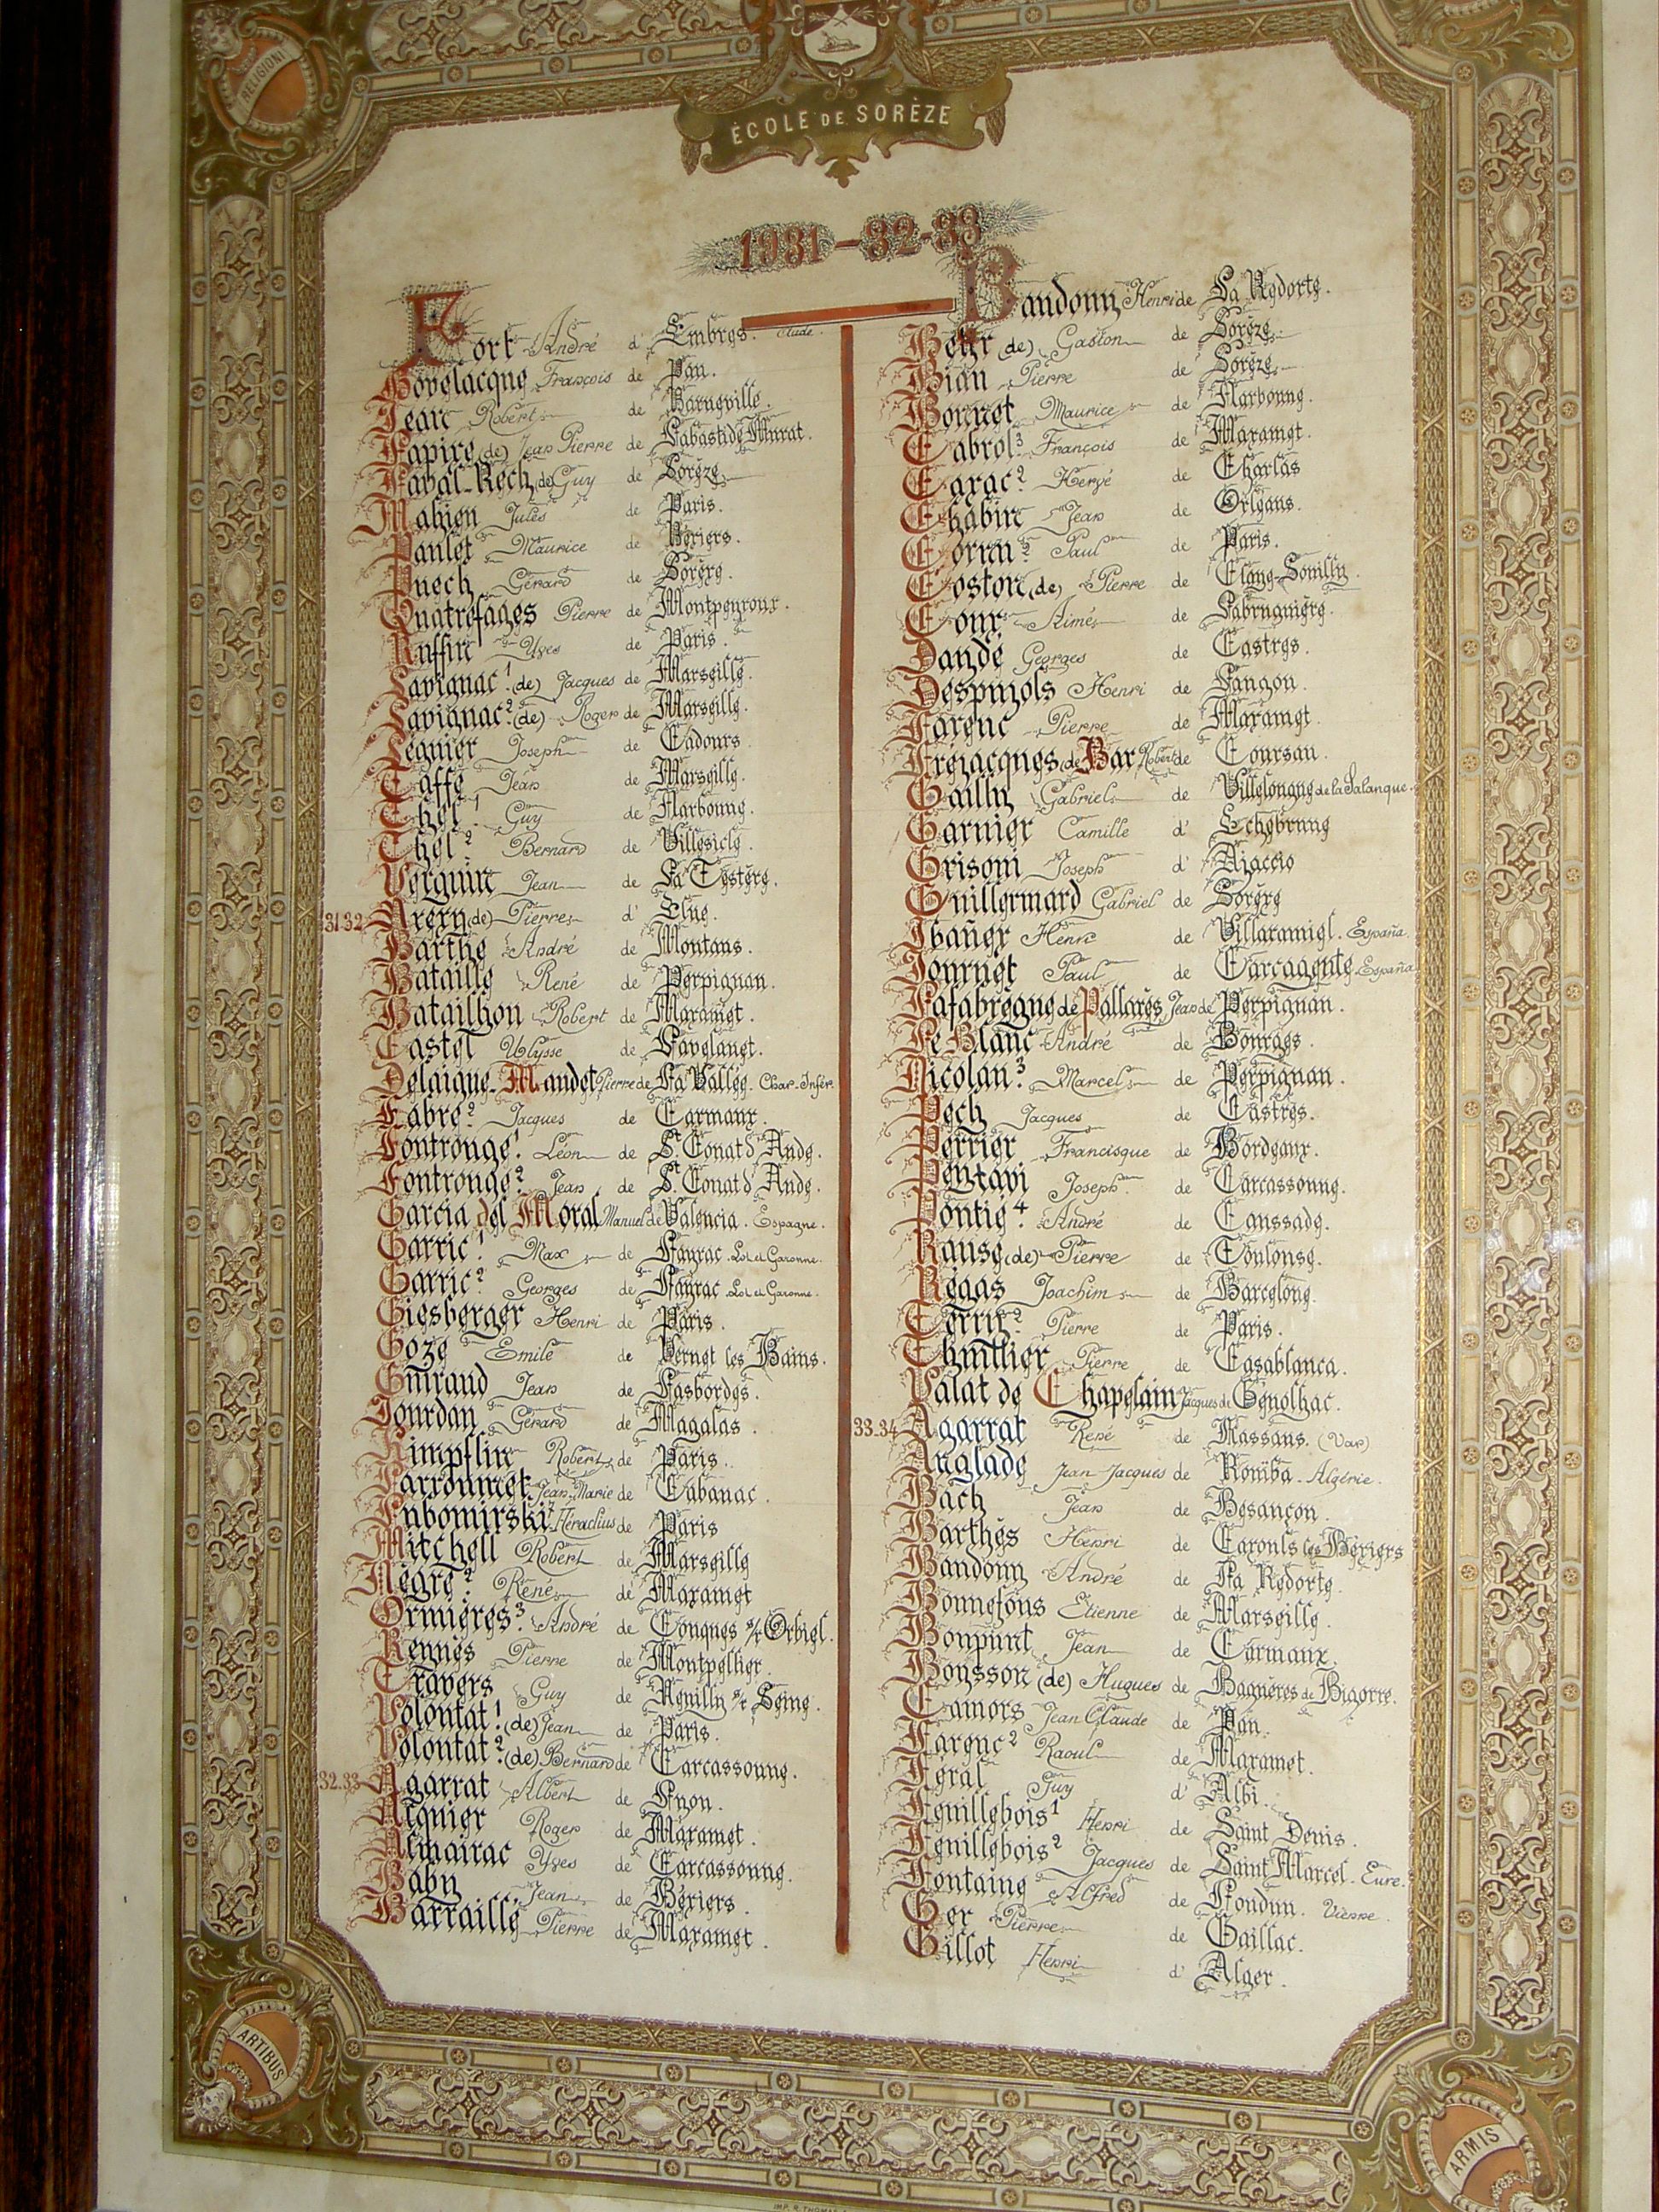 RELIGIONI
ÉCOLE DE SORÈZE
1931-32-33
Fort André d' Embres étude.
Hovelacque François de Pau.
Jean Robert de Barneville.
Lapire (de) Jean Pierre de Labastide Murat.
Laval-Rech (de) Guy de Sorèze
Mahieu Jules de Paris.
Paulet Maurice de Béziers.
Puech Gérard de Sorèze.
Quatrefages Pierre de Montpeyroux.
Ruffin Yves de Paris.
Savignac 1. (de) Jacques de Marseille.
Savignac 2. (de) Roger de Marseille.
Séguier Joseph de Cadours
Taffe Jean de Marseille.
Thel 1 Guy de Narbonne.
Thel 2 Bernard de Villesicle.
Verguin Jean de La Testère.
31-32 Arexy (de) Pierre d' Elne.
Barthe André de Montans.
Bataille René de Perpignan.
Batailhou Robert de Mazamet.
Castel Ulysse de Lavelanet.
Delaigue-Mandet Pierre de La Vallée. Char. Infér.
Fabre 2 Jacques de Carmaux.
Fontrouge 1. Léon de St Conat d'Aude.
Fontrouge 2. Jean de St Conat d'Aude.
Garcia del Moral Manuel de Valencia. Espagne.
Garric 1. Max de Layrac. Lot et Garonne.
Garric 2. Georges de Layrac. Lot et Garonne.
Giesberger Henri de Paris.
Goze Emile de Vernet les Bains.
Guiraud Jean de Lasbordes.
Jourdan Gérard de Magalas.
Kimpflin Robert de Paris.
Larroumet Jean-Marie de Cabanac.
Lubomirski 2 Héraclius de Paris
Mitchell Robert de Marseille
Nègre 2. René de Mazamet
Ormières 3. André de Conques s/r Orbiel.
Rennes Pierre de Montpellier.
Travers Guy de Neuilly s/r Seine.
Volontat 1. (de) Jean de Paris.
Volontat 2. (de) Bernard de Carcassonne.
32.33 Agarrat Albert de Lyon.
Alquier Roger de Mazamet.
Almairac Yves de Carcassonne.
Baby Jean de Béziers.
Barraillé Pierre de Mazamet.
Baudouy Henri de La Redorte.
Behr (de) Gaston de Sorèze.
Biau Pierre de Sorèze.
Bonnet Maurice de Narbonne.
Cabrol 3 François de Mazamet.
Carac 2. Hervé de Charlas
Chabin Jean de Orléans.
Corru 2. Paul de Paris.
Coston (de) Pierre de Claye-Souilly.
Cour Aimé de Labruguière.
Daudé Georges de Castres.
Despujols Henri de Langon.
Farenc Pierre de Mazamet.
Fréjacques (de) Bar Robert de Coursan.
Gailly Gabriel de Villelongue de la Salanque.
Garnier Camille d' Echebrune
Grisoni Joseph d' Ajaccio
Guillermard Gabriel de Sorèze
Ibañez Henri de Villaramiel. España.
Journet Paul de Carcagente. España
Lafabrègue de Pallarès, Jean de Perpignan.
Le Blanc André de Bourges.
Nicolau 3. Marcel de Perpignan.
Pech Jacques de Castres.
Perrier Francisque de Bordeaux.
Peytavi Joseph. de Carcassonne.
Pontié 4. André de Caussade.
Rause (de) Pierre de Toulouse.
Régas Joachim de Barcelone.
Terrin 2. Pierre de Paris.
Thuillier Pierre de Casablanca.
Valat de Chapelain Jacques de Génolhac.
33.34 Agarrat René de Nassans. (Var)
Anglade Jean-Jacques de Rouïba. Algérie.
Bach Jean de Besançon.
Barthès Henri de Cazouls les Béziers
Baudouy André de La Redorte.
Bonnefons Etienne de Marseille.
Bonpunt Jean de Carmaux.
Bousson (de) Hugues de Bagnères de Bigorre.
Camors Jean Claude de Pau.
Farenc 2 Raoul de Mazamet.
Féral Guy d' Albi.
Feuillebois 1 Henri de Saint Denis.
Feuillebois 2 Jacques de Saint Marcel. Eure.
Fontaine Alfred de Loudun. Vienne.
Ger Pierre de Gaillac.
Gillot Henri d' Alger.
ARTIBUS
ARMIS